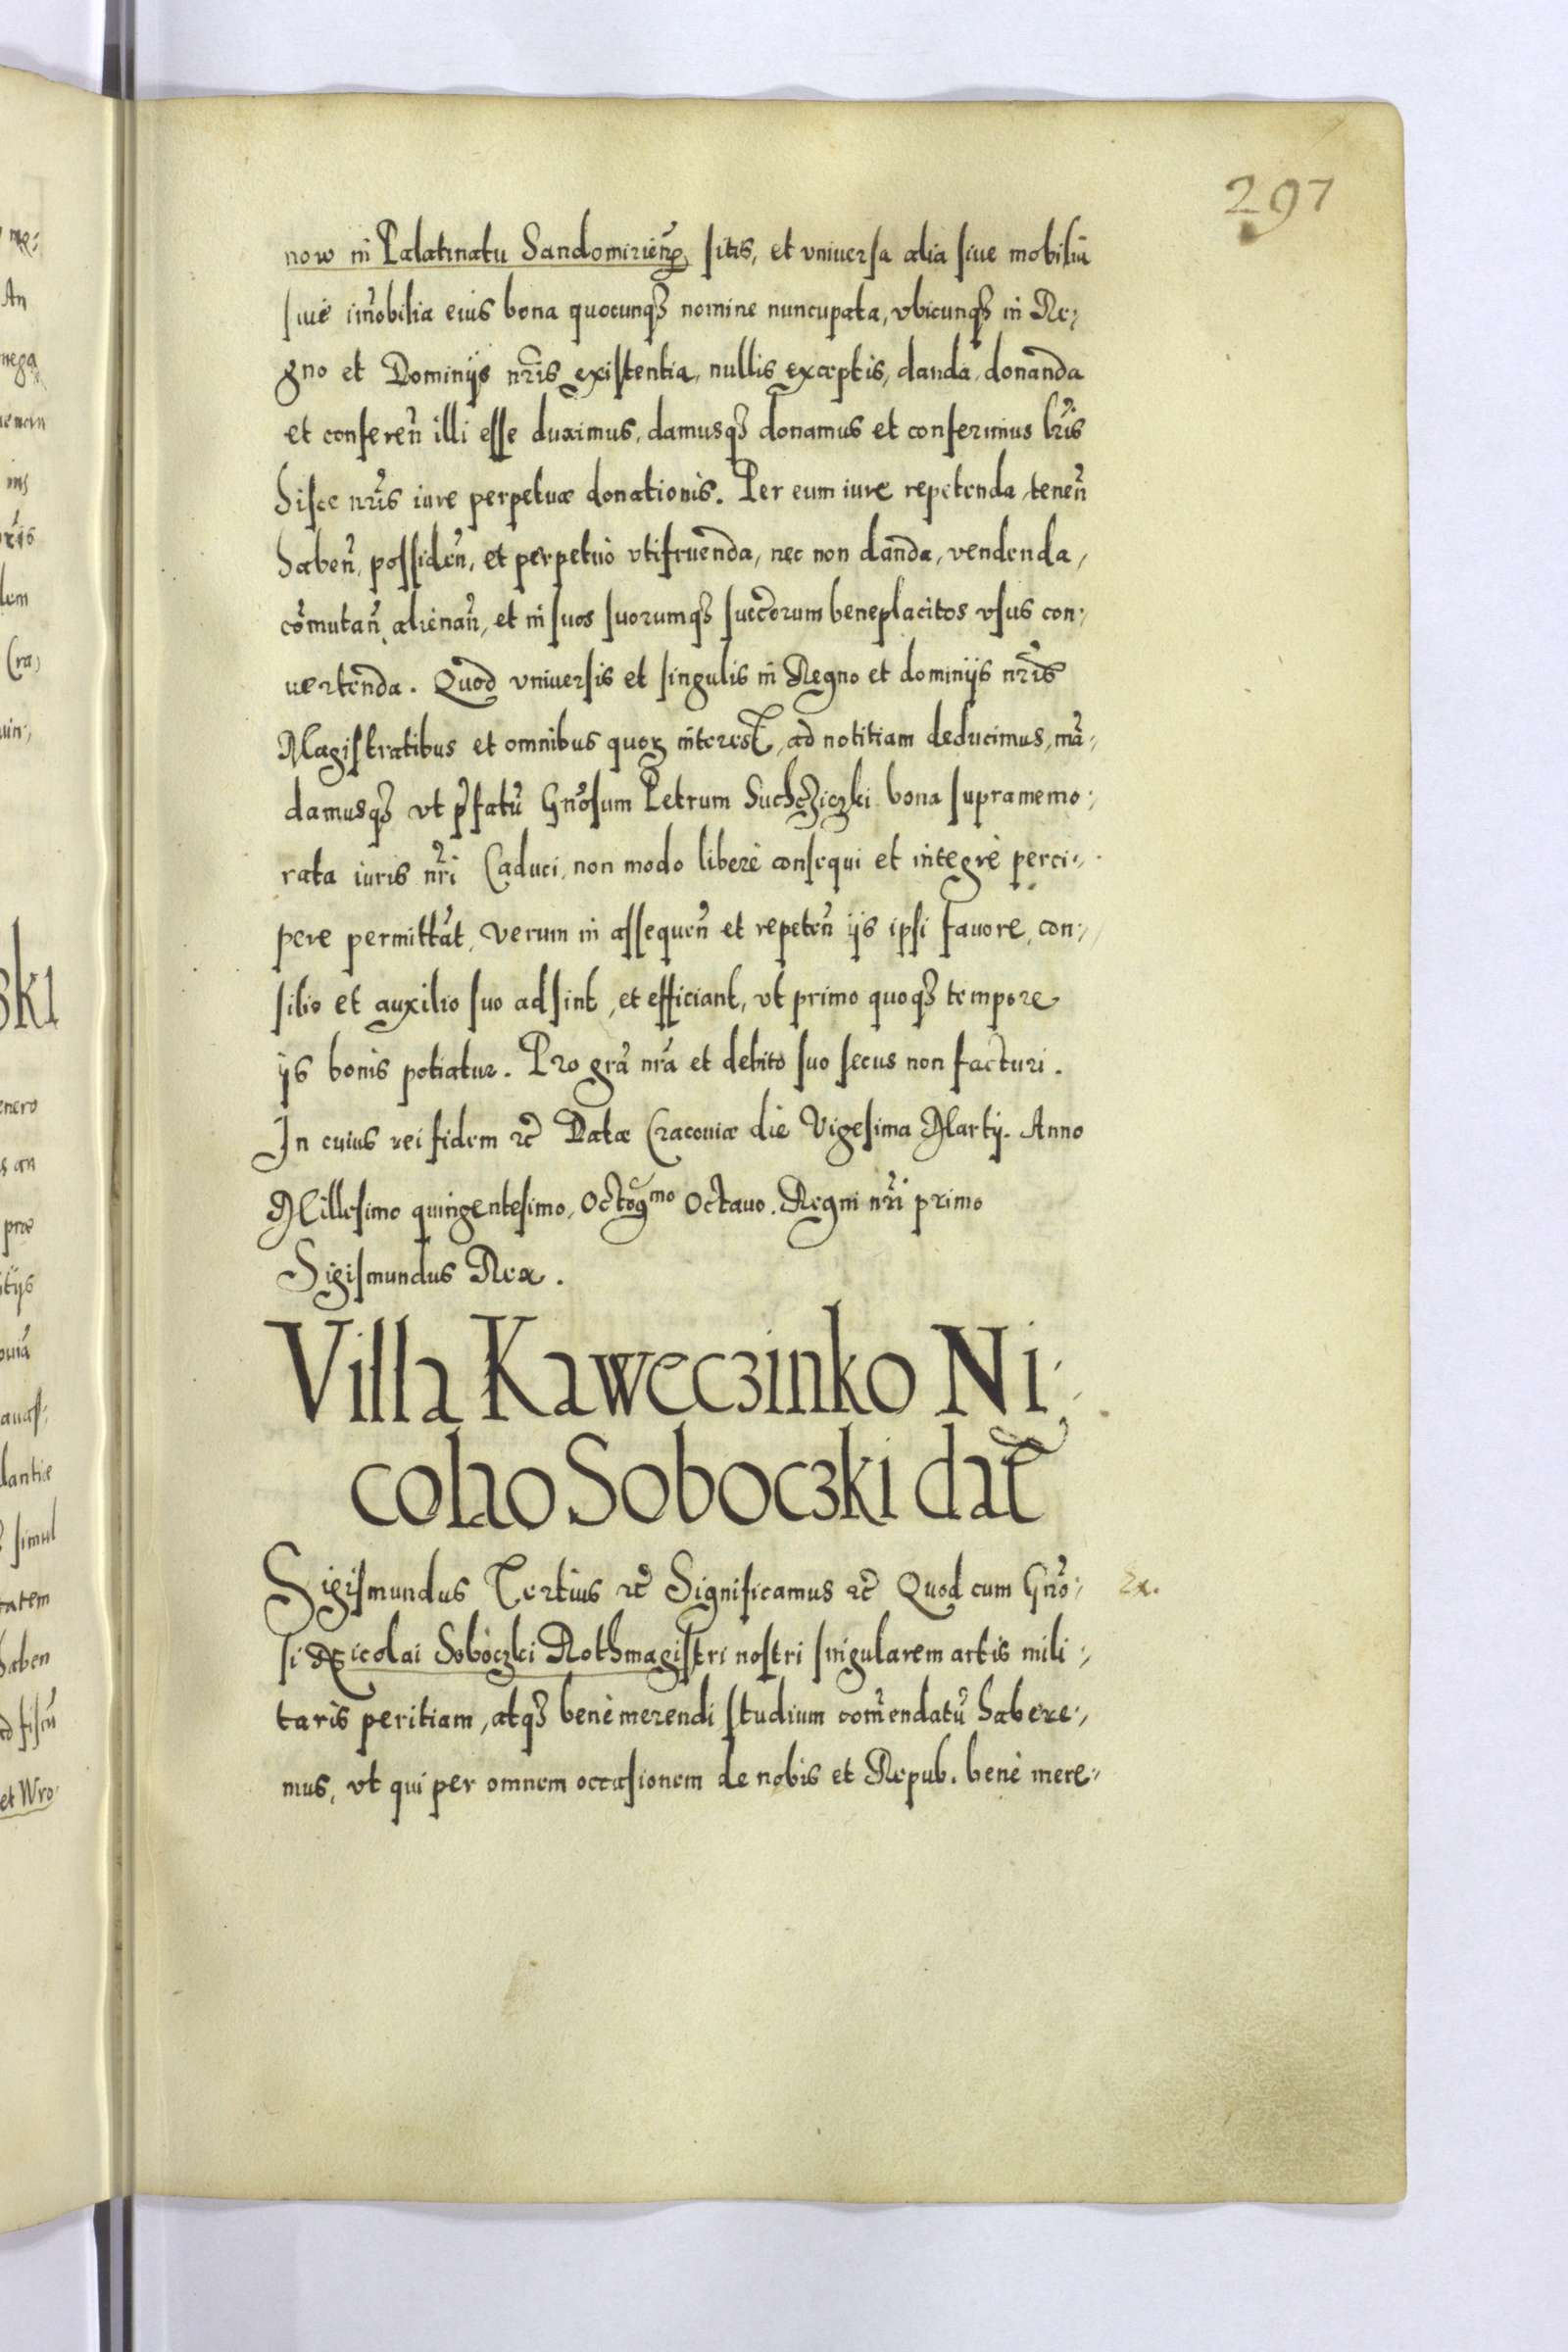 297
now in Palatinatu Sandomirien̄ sitis, et vniuersa alia siue mobilia
siue im̄obilia eius bona quocunq₃ nomine nuncupata, vbicunq₃ in Re,
gno et Dominijs nr̄is existentia, nullis exceptis, danda, donanda
et conferen̄ illi esse duximus, damusq₃ donamus et conferimus lr̄is
hisce nr̄is iure perpetuæ donationis. Per eum iure repetenda, tenen̄
haben̄, possiden̄, et perpetuò vtifruenda, nec non danda, vendenda,
com̄utan̄ alienan̄, et in suos suorumq₃ succ̄orum beneplacitos vsus con,
uertenda. Quod vniuersis et singulis in Regno et dominijs nr̄is
Magistratibus et omnibus quoꝝ interest, ad notitiam deducimus, mā,
damusq₃ vt p̄fatū Gn̄osum Petrum Suchcziczki bona supramemo,
rata iuris nr̄i Caduci, non modo liberè consequi et integrè perci,
pere permittāt, verum in assequen̄ et repeten̄ ijs ipsi fauore, con,
silio et auxilio suo adsint, et efficiant, vt primo quoq₃ tempore
ijs bonis potiatur. Pro grā nrā et debito suo secus non facturi.
In cuius rei fidem etc̄ Datæ Cracouiæ die Vigesima Martij. Anno
Millesimo quingentesimo, Octoḡmo Octauo. Regni nr̄i primo
Sigismundus Rex.
Villa Kaweczinko Ni,
colao Soboczki dat̄
Sigismundus Tertius etc̄ Significamus etc̄ Quod cum Gn̄o,
si Nicolai Soboczki Rothmagistri nostri singularem artis mili,
taris peritiam, atq₃ benè merendi studium com̄endatū habere,
mus, vt qui per omnem occasionem de nobis et Repub. benè mere,